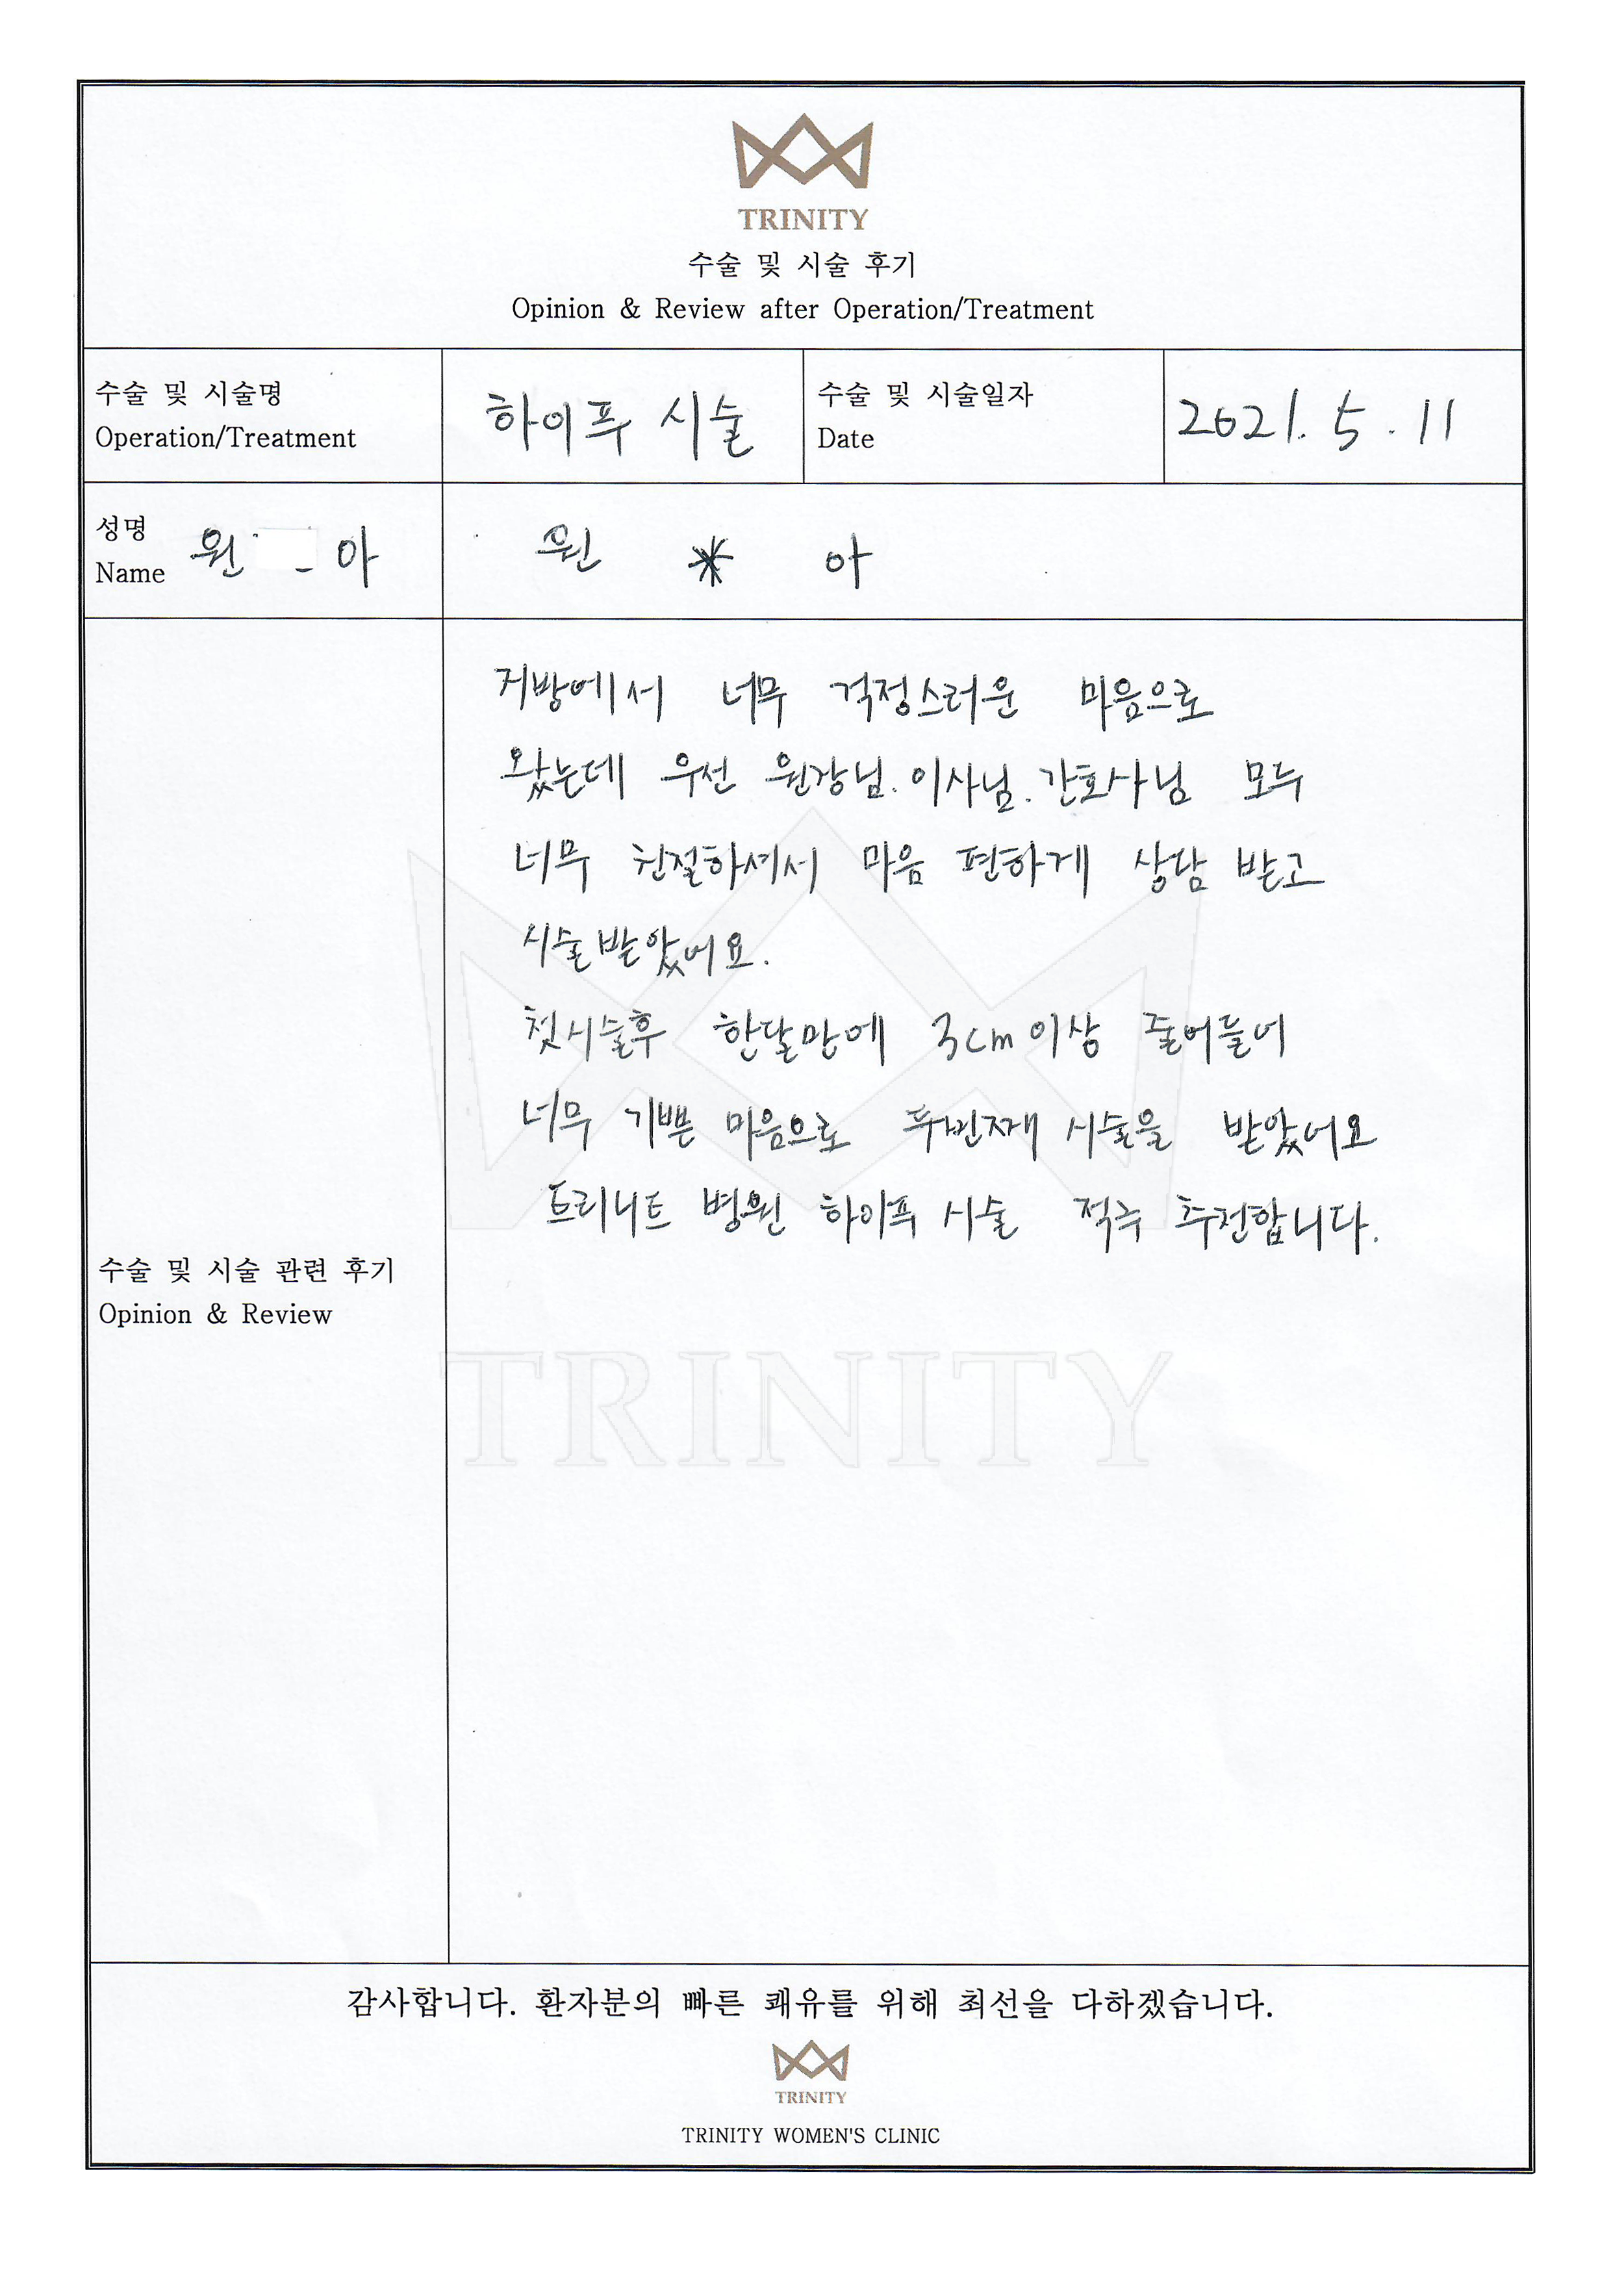 TRINITY
수술 및 시술 후기
Opinion & Review after Operation/Treatment
수술 및 시술명
Operation/Treatment
하이푸 시술
수술 및 시술일자
Date
2021. 5. 11
성명
Name
원 아
원 * 아
지방에서 너무 걱정스러운 마음으로
왔는데 우선 원장님. 이사님. 간호사님 모두
너무 친절하셔서 마음 편하게 상담 받고
시술받았어요.
첫시술후 한달만에 3cm 이상 줄어들어
너무 기쁜 마음으로 두번째 시술을 받았어요
트리니트 병원 하이푸 시술 적극 추천합니다.
수술 및 시술 관련 후기
Opinion & Review
TRINITY
감사합니다. 환자분의 빠른 쾌유를 위해 최선을 다하겠습니다.
TRINITY
TRINITY WOMEN'S CLINIC